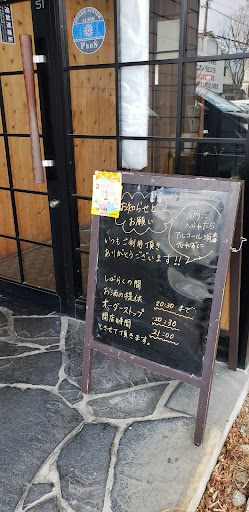 お知らせと
お願い
店内に
入られたら
アルコール消毒
いつもご利用頂き
ありがとうございます!!
しばらくの間
お酒の提供
20:30まで
オーダーストップ
20:30
閉店時間
21:00
とさせて頂きます。